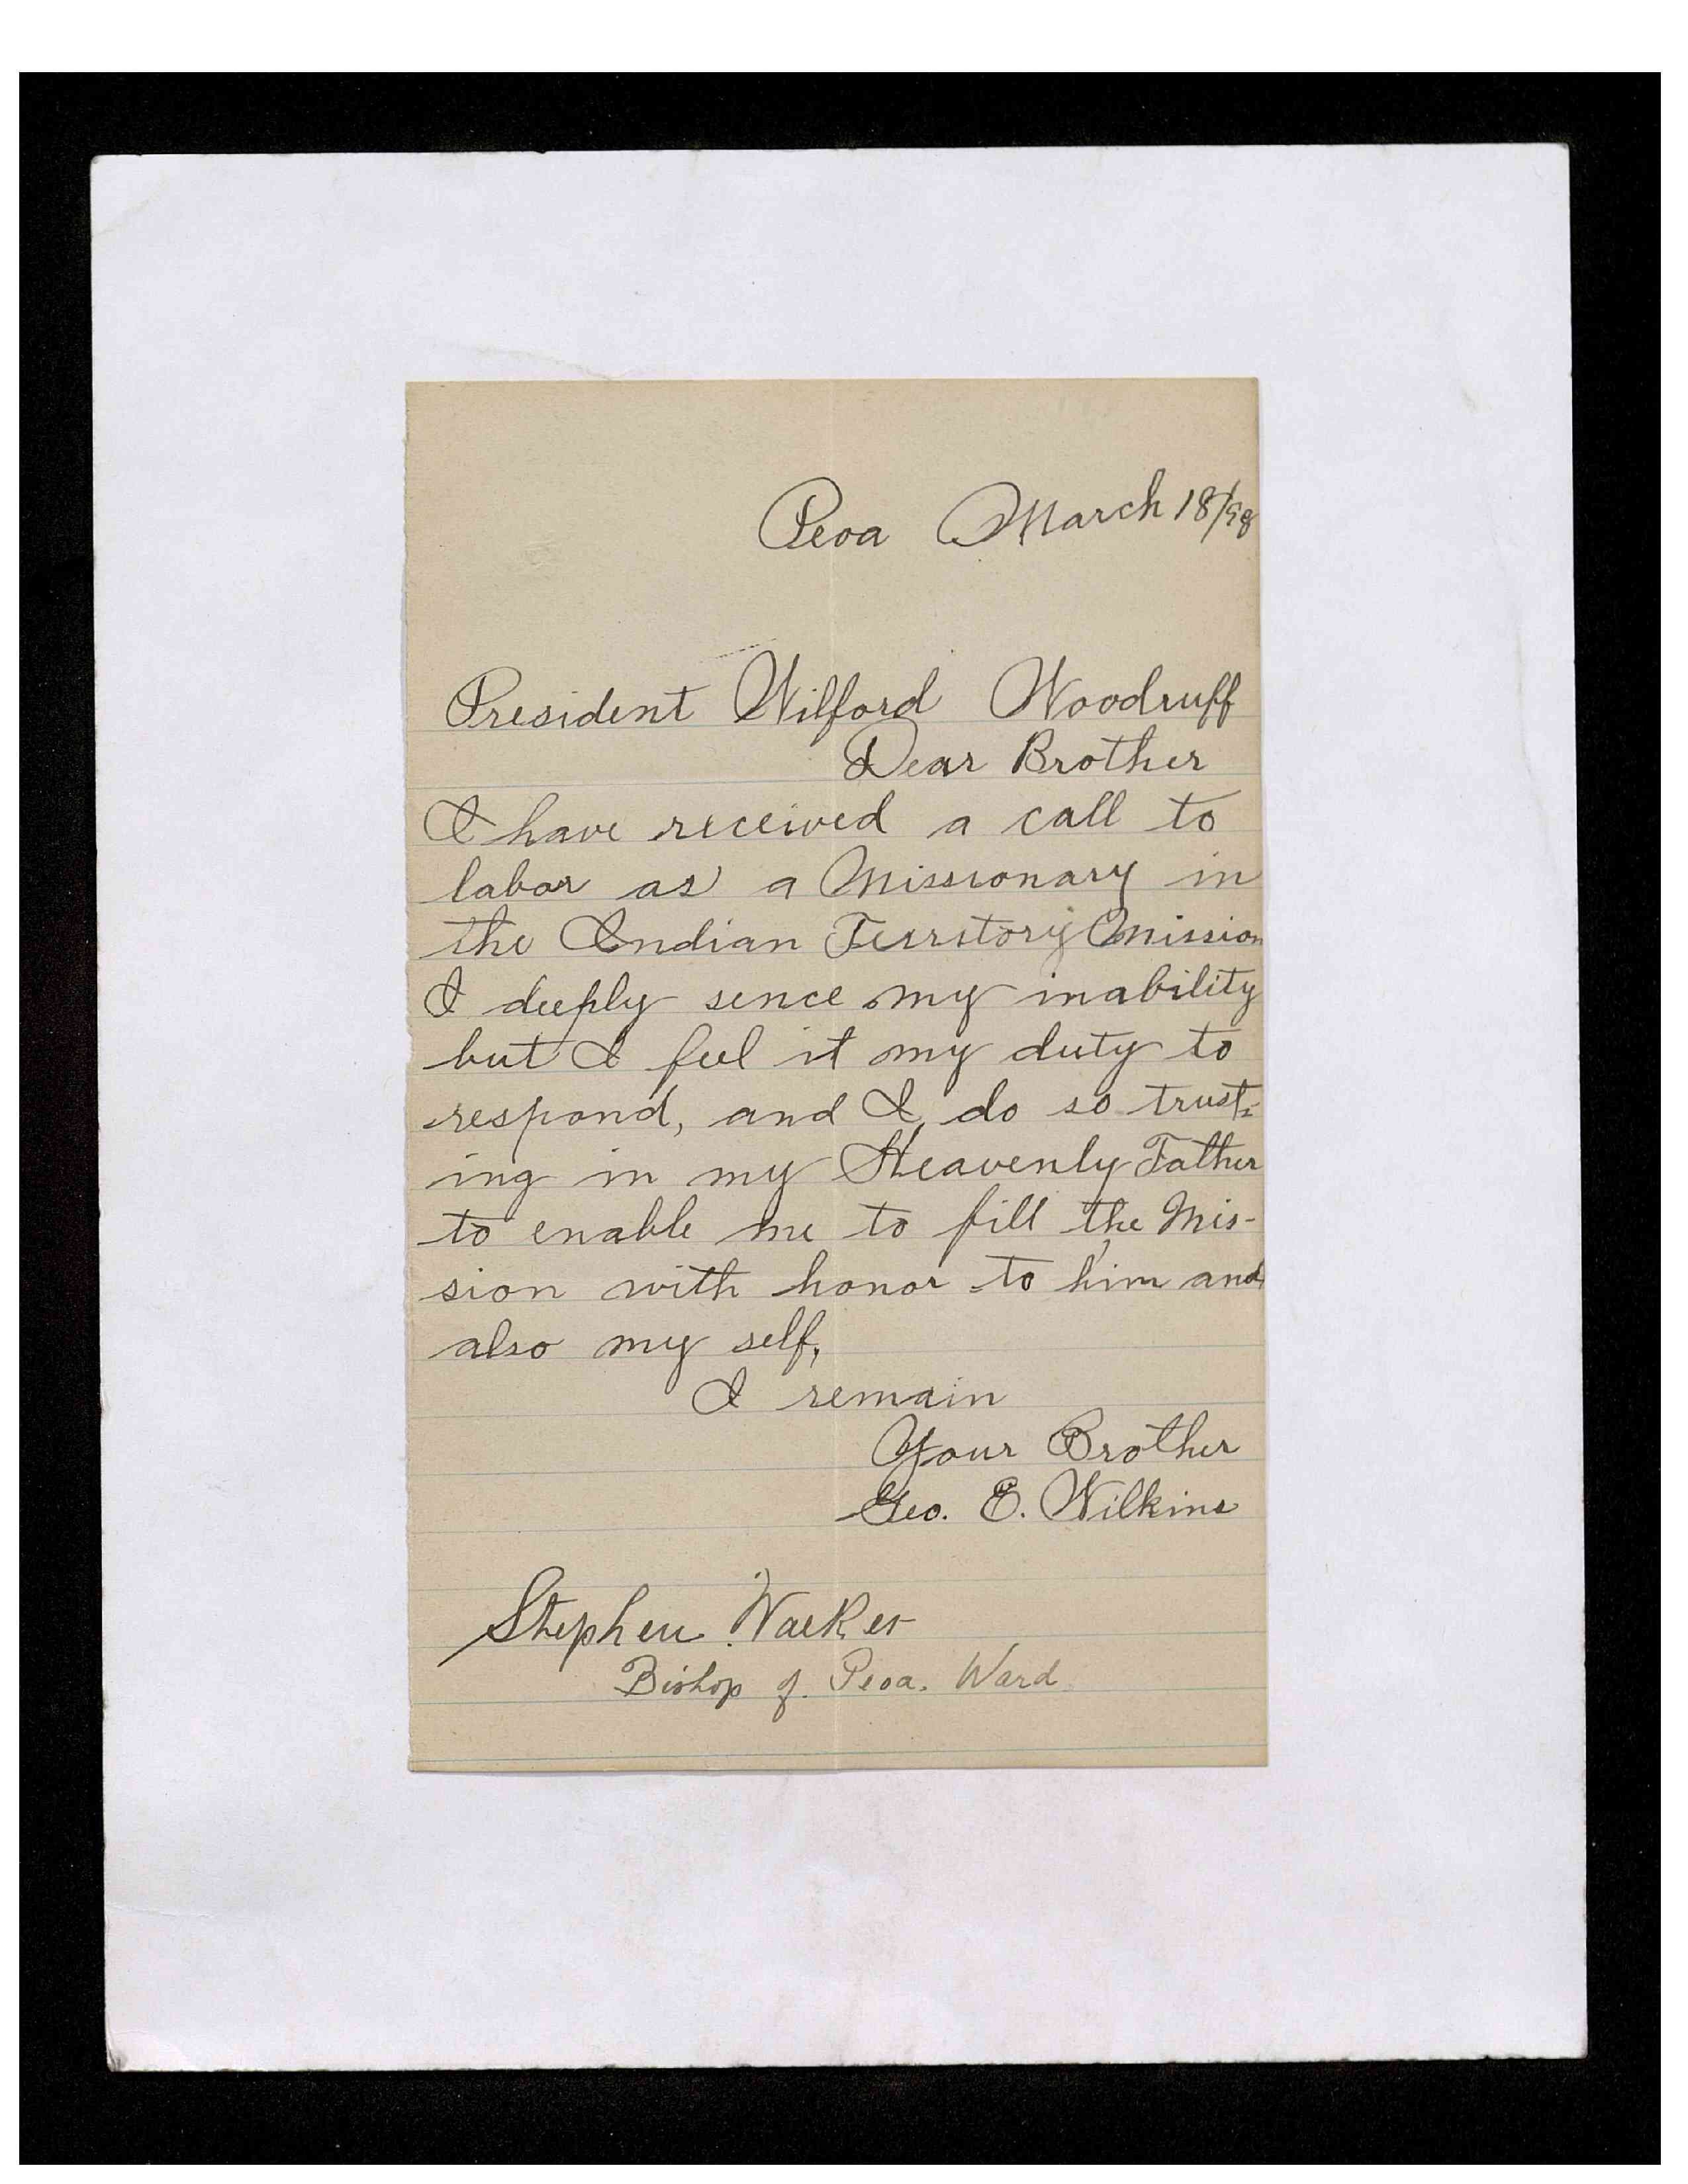 Peoa March 18/98
President Wilford Woodruff
Dear Brother
I have received a call to
labor as a Missionary in
the Indian Terrstory Mission
I deeply sence my inability
but I feel it my duty to
respond, and I do so trust-
ing in my Heavenly Father
to enable me to fill the Mis-
sion with honor to him and
also my self,
I remain
Your Brother
Geo. E. Wilkins
Stephen Walker
Bishop of. Peoa. Ward